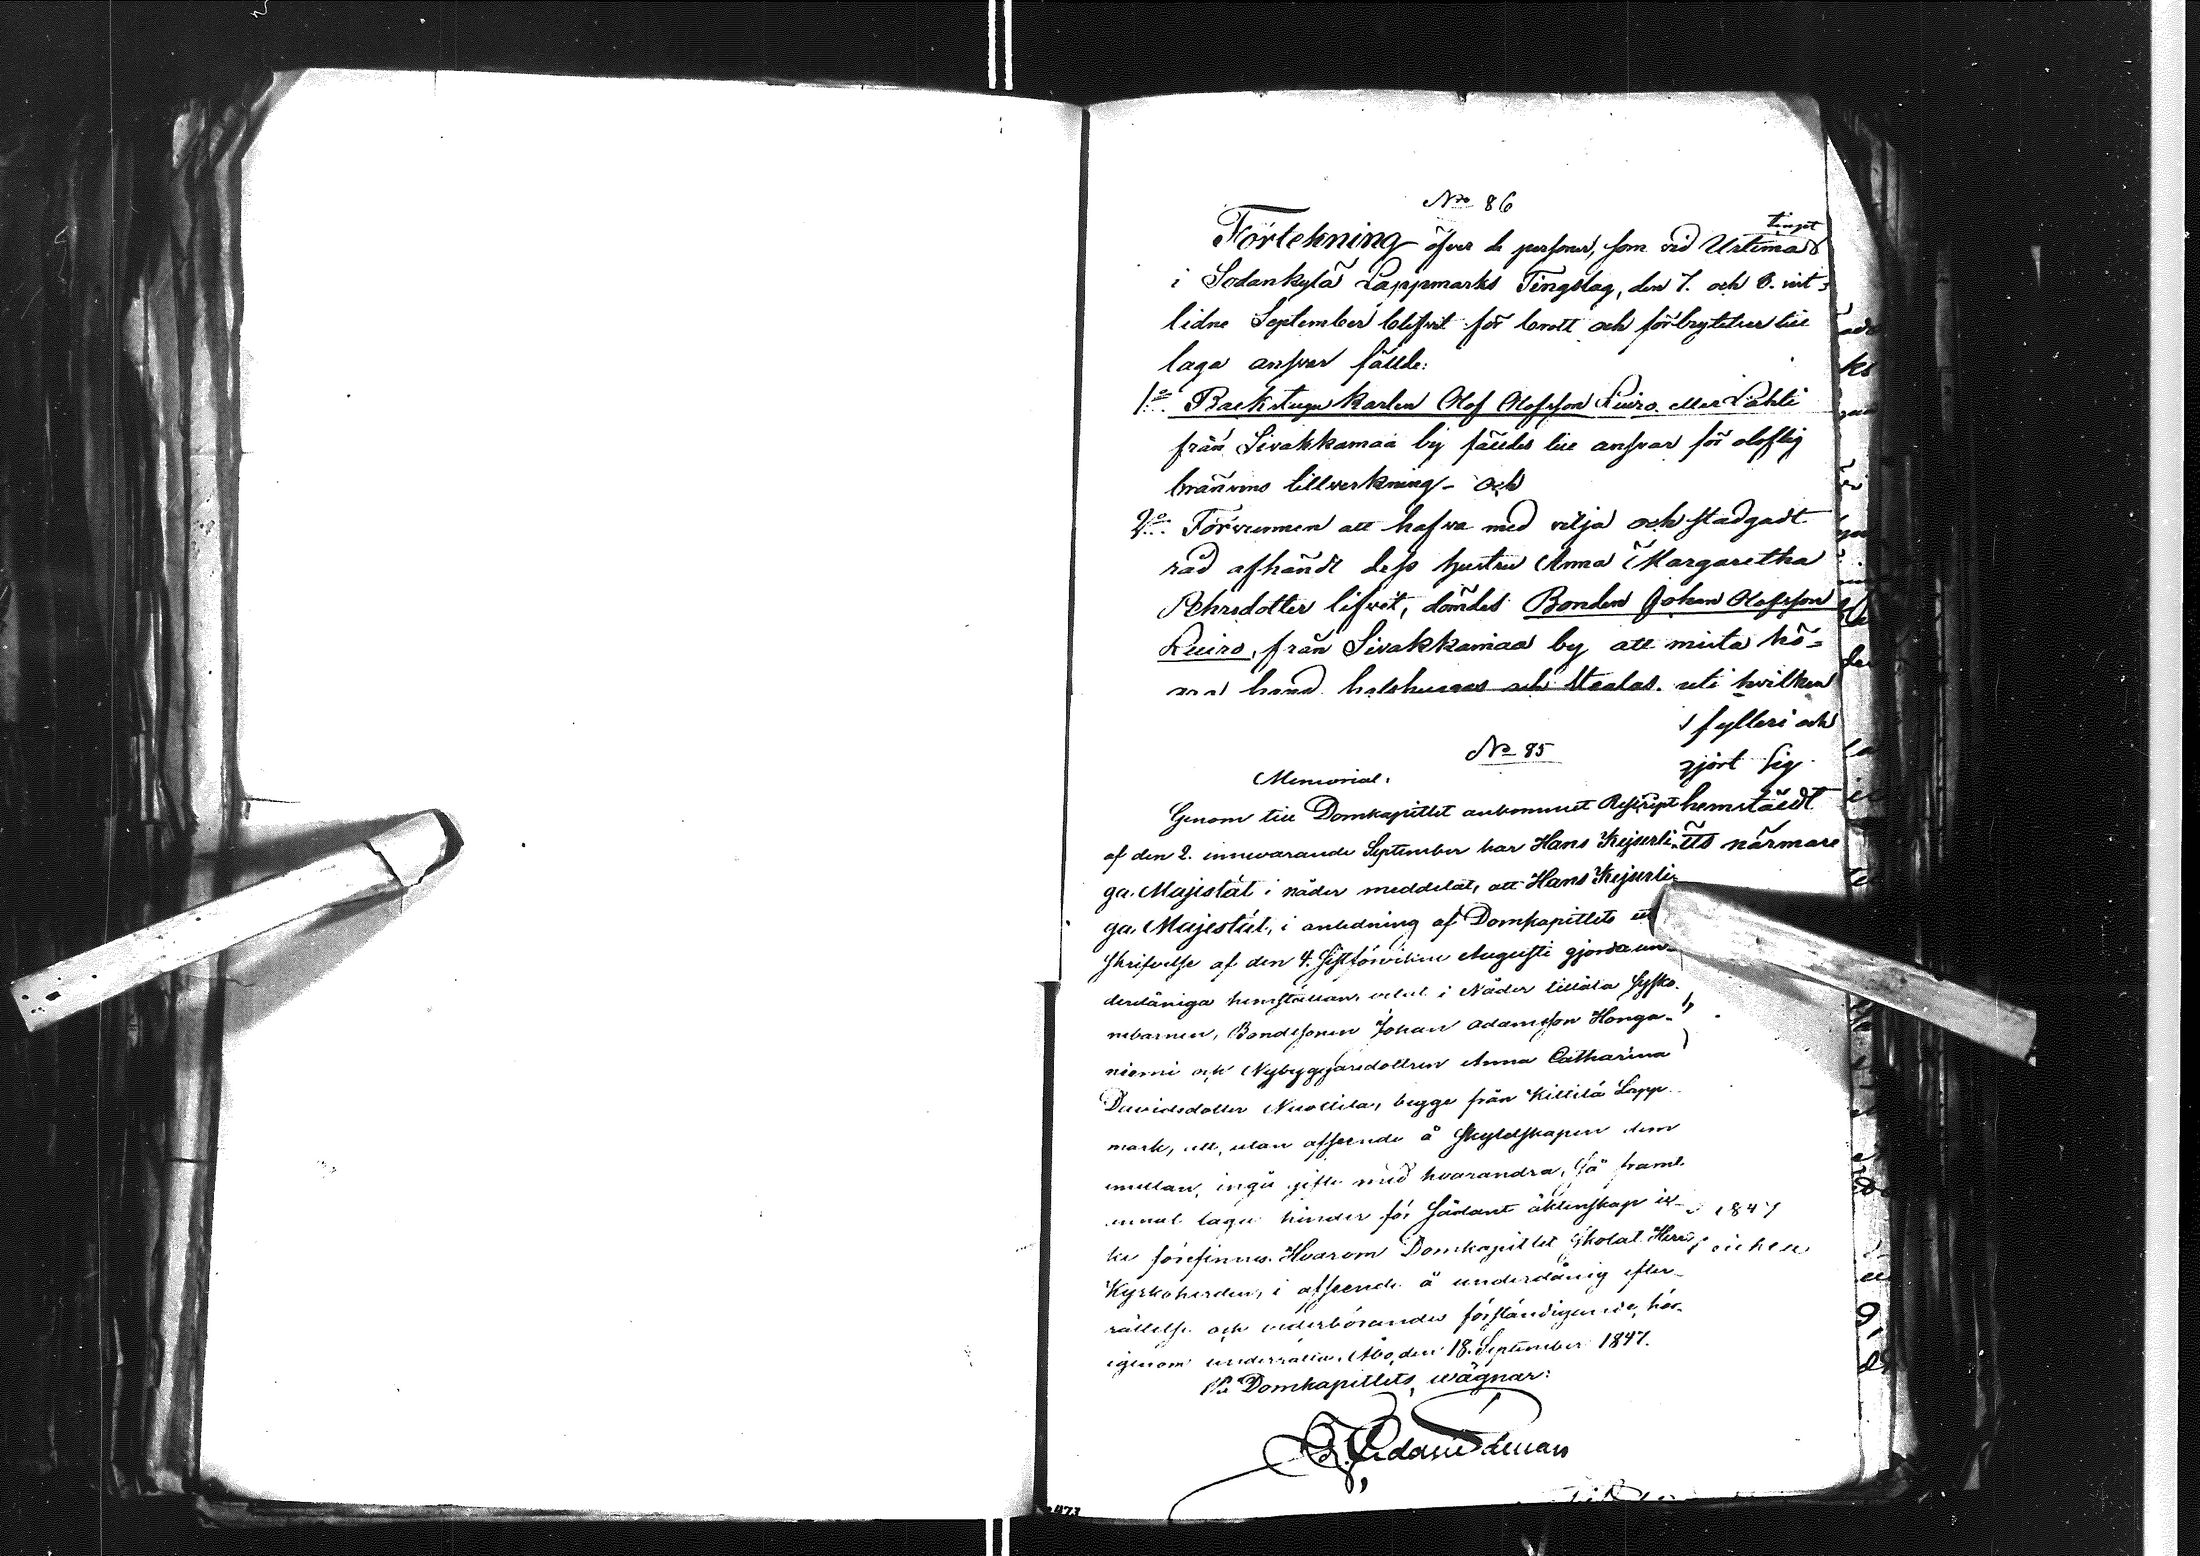 No 86
Förtekning öfver de personer, som vid Urtima tinget
i Sodankylä Lappmarks Tingslag, den 7. och 8. sist-
lidne September blifvit för brott och förbrytelser till
laga ansvar fällde:
1o. Backstugukarlen Olof Olofsson Luiro eller Lahti
från Sivakkamaa by fälldes till ansvar för oloflig
bränvins tillverkning - och
2o. Förvunnen att hafva med vilja och stadgadt
råd afhändt dess hustru Anna Margaretha
Pehrsdotter lifvet, dömdes Bonden Johan Olofsson
Luiro, från Sivakkamaa by att mista hö-
hand halshuggas och steglas. uti hvilken
fylleri och
gjort sig
hemstäldt
närmare
No 85
Memorial.
Genom till Domkapitlet ankommet Reskript
af den 2. innevarande September har Hans Kejserli-
ga Majestät i nåder meddelat, att Hans Kejserli-
ga Majestät, i anledning af Domkapitlets
skrifvelse af den 4. sistförvikne Augusti gjorda un-
derdåniga hemställan, velat i Nåder tillåta Sysko-
nebarnen, Bondesonen Johan Adamsson Honga-
niemi och Nybyggaredottren Anna Catharina
Davidsdotter Nuottila, begge från Kittilä Lapp-
mark, att, utan afseende å skyldskapen dem
emellan, ingå gifte med hvarandra, så framt
annat laga hinder för sådant äktenskap ic-
ke förefinnes. Hvarom Domkapitlet skolat Herr
Kyrkoherden, i afseende å underdånig efter-
rättelse och vederbörandes förständigande, här-
igenom underrätta. Åbo, den 18. September 1847.
På Domkapitlets vägnar:
1847
473